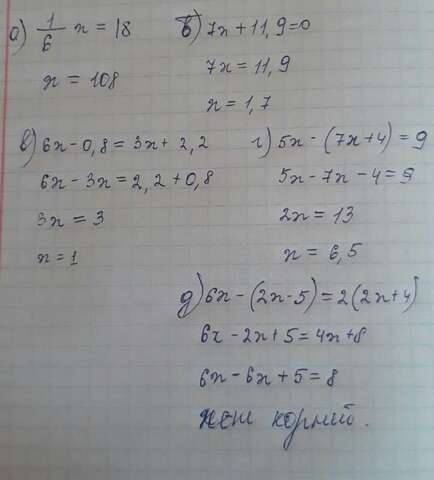 а) 1/6 x = 18
x = 108
б) 7x + 11,9 = 0
7x = 11,9
x = 1,7
в) 6x - 0,8 = 3x + 2,2
6x - 3x = 2,2 + 0,8
3x = 3
x = 1
г) 5x - (7x + 4) = 9
5x - 7x - 4 = 9
2x = 13
x = 6,5
д) 6x - (2x - 5) = 2(2x + 4)
6x - 2x + 5 = 4x + 8
6x - 6x + 5 = 8
нет корний.